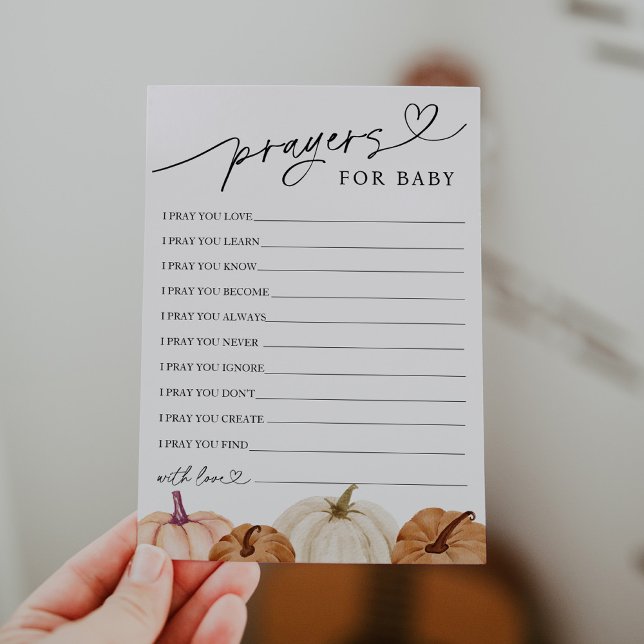 prayers
FOR BABY
I PRAY YOU LOVE
I PRAY YOU LEARN
I PRAY YOU KNOW
I PRAY YOU BECOME
I PRAY YOU ALWAYS
I PRAY YOU NEVER
I PRAY YOU IGNORE
I PRAY YOU DON'T
I PRAY YOU CREATE
I PRAY YOU FIND
with love